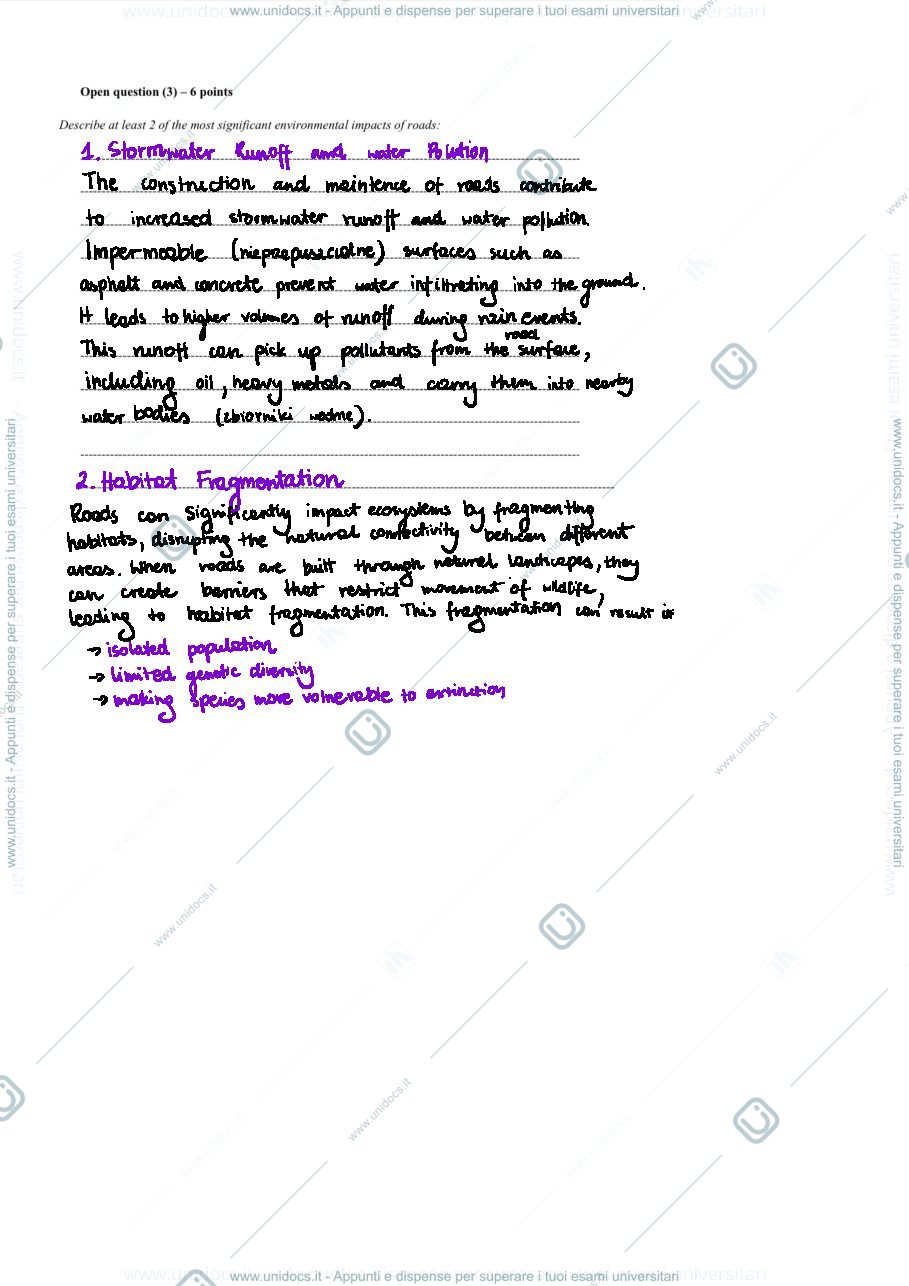 www.unidocs.it - Appunti e dispense per superare i tuoi esami universitari
Open question (3) – 6 points
Describe at least 2 of the most significant environmental impacts of roads:
1. Stormwater Runoff and water Polution
The construction and maintence of roads contribute
to increased stormwater runoff and water pollution.
Impermeable (nieprzepuszczalne) surfaces such as
asphalt and concrete prevent water infiltrating into the ground.
It leads to higher volumes of runoff during rain events.
This runoff can pick up pollutants from the road surface,
including oil, heavy metals and carry them into nearby
water bodies (zbiorniki wodne).
2. Habitat Fragmentation
Roads can significantly impact ecosystems by fragmenting
habitats, disrupting the natural connectivity between different
areas. When roads are built through natural landscapes, they
can create barriers that restrict movement of wildlife,
leading to habitat fragmentation. This fragmentation can result in
→ isolated population
→ limited genetic diversity
→ making species more vulnerable to extinction
www.unidocs.it - Appunti e dispense per superare i tuoi esami universitari
www.unidocs.it - Appunti e dispense per superare i tuoi esami universitari
www.unidocs.it - Appunti e dispense per superare i tuoi esami universitari
www.unidocs.it
www.unidocs.it
www.unidocs.it